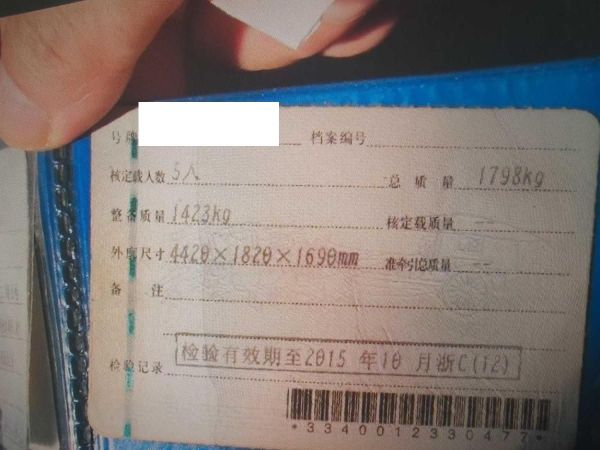 号牌 档案编号
核定载人数 5人 总质量 1798kg
整备质量 1423kg 核定载质量 --
外廓尺寸 4420×1820×1690mm 准牵引总质量 --
备注
检验记录 检验有效期至2015年10月浙C(12)
*3340012330477*